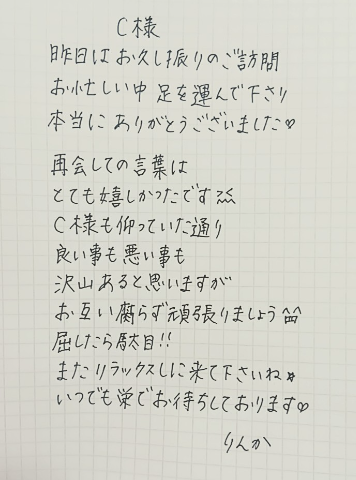 C様
昨日はお久し振りのご訪問
お忙しい中 足を運んで下さり
本当に ありがとうございました♡
再会しての言葉は
とても嬉しかったです
C様も仰っていた通り
良い事も悪い事も
沢山あると思いますが
お互い腐らず頑張りましょう^^
屈したら駄目!!
またリラックスしに来て下さいね
いつでも栄でお待ちしております♡
りんか